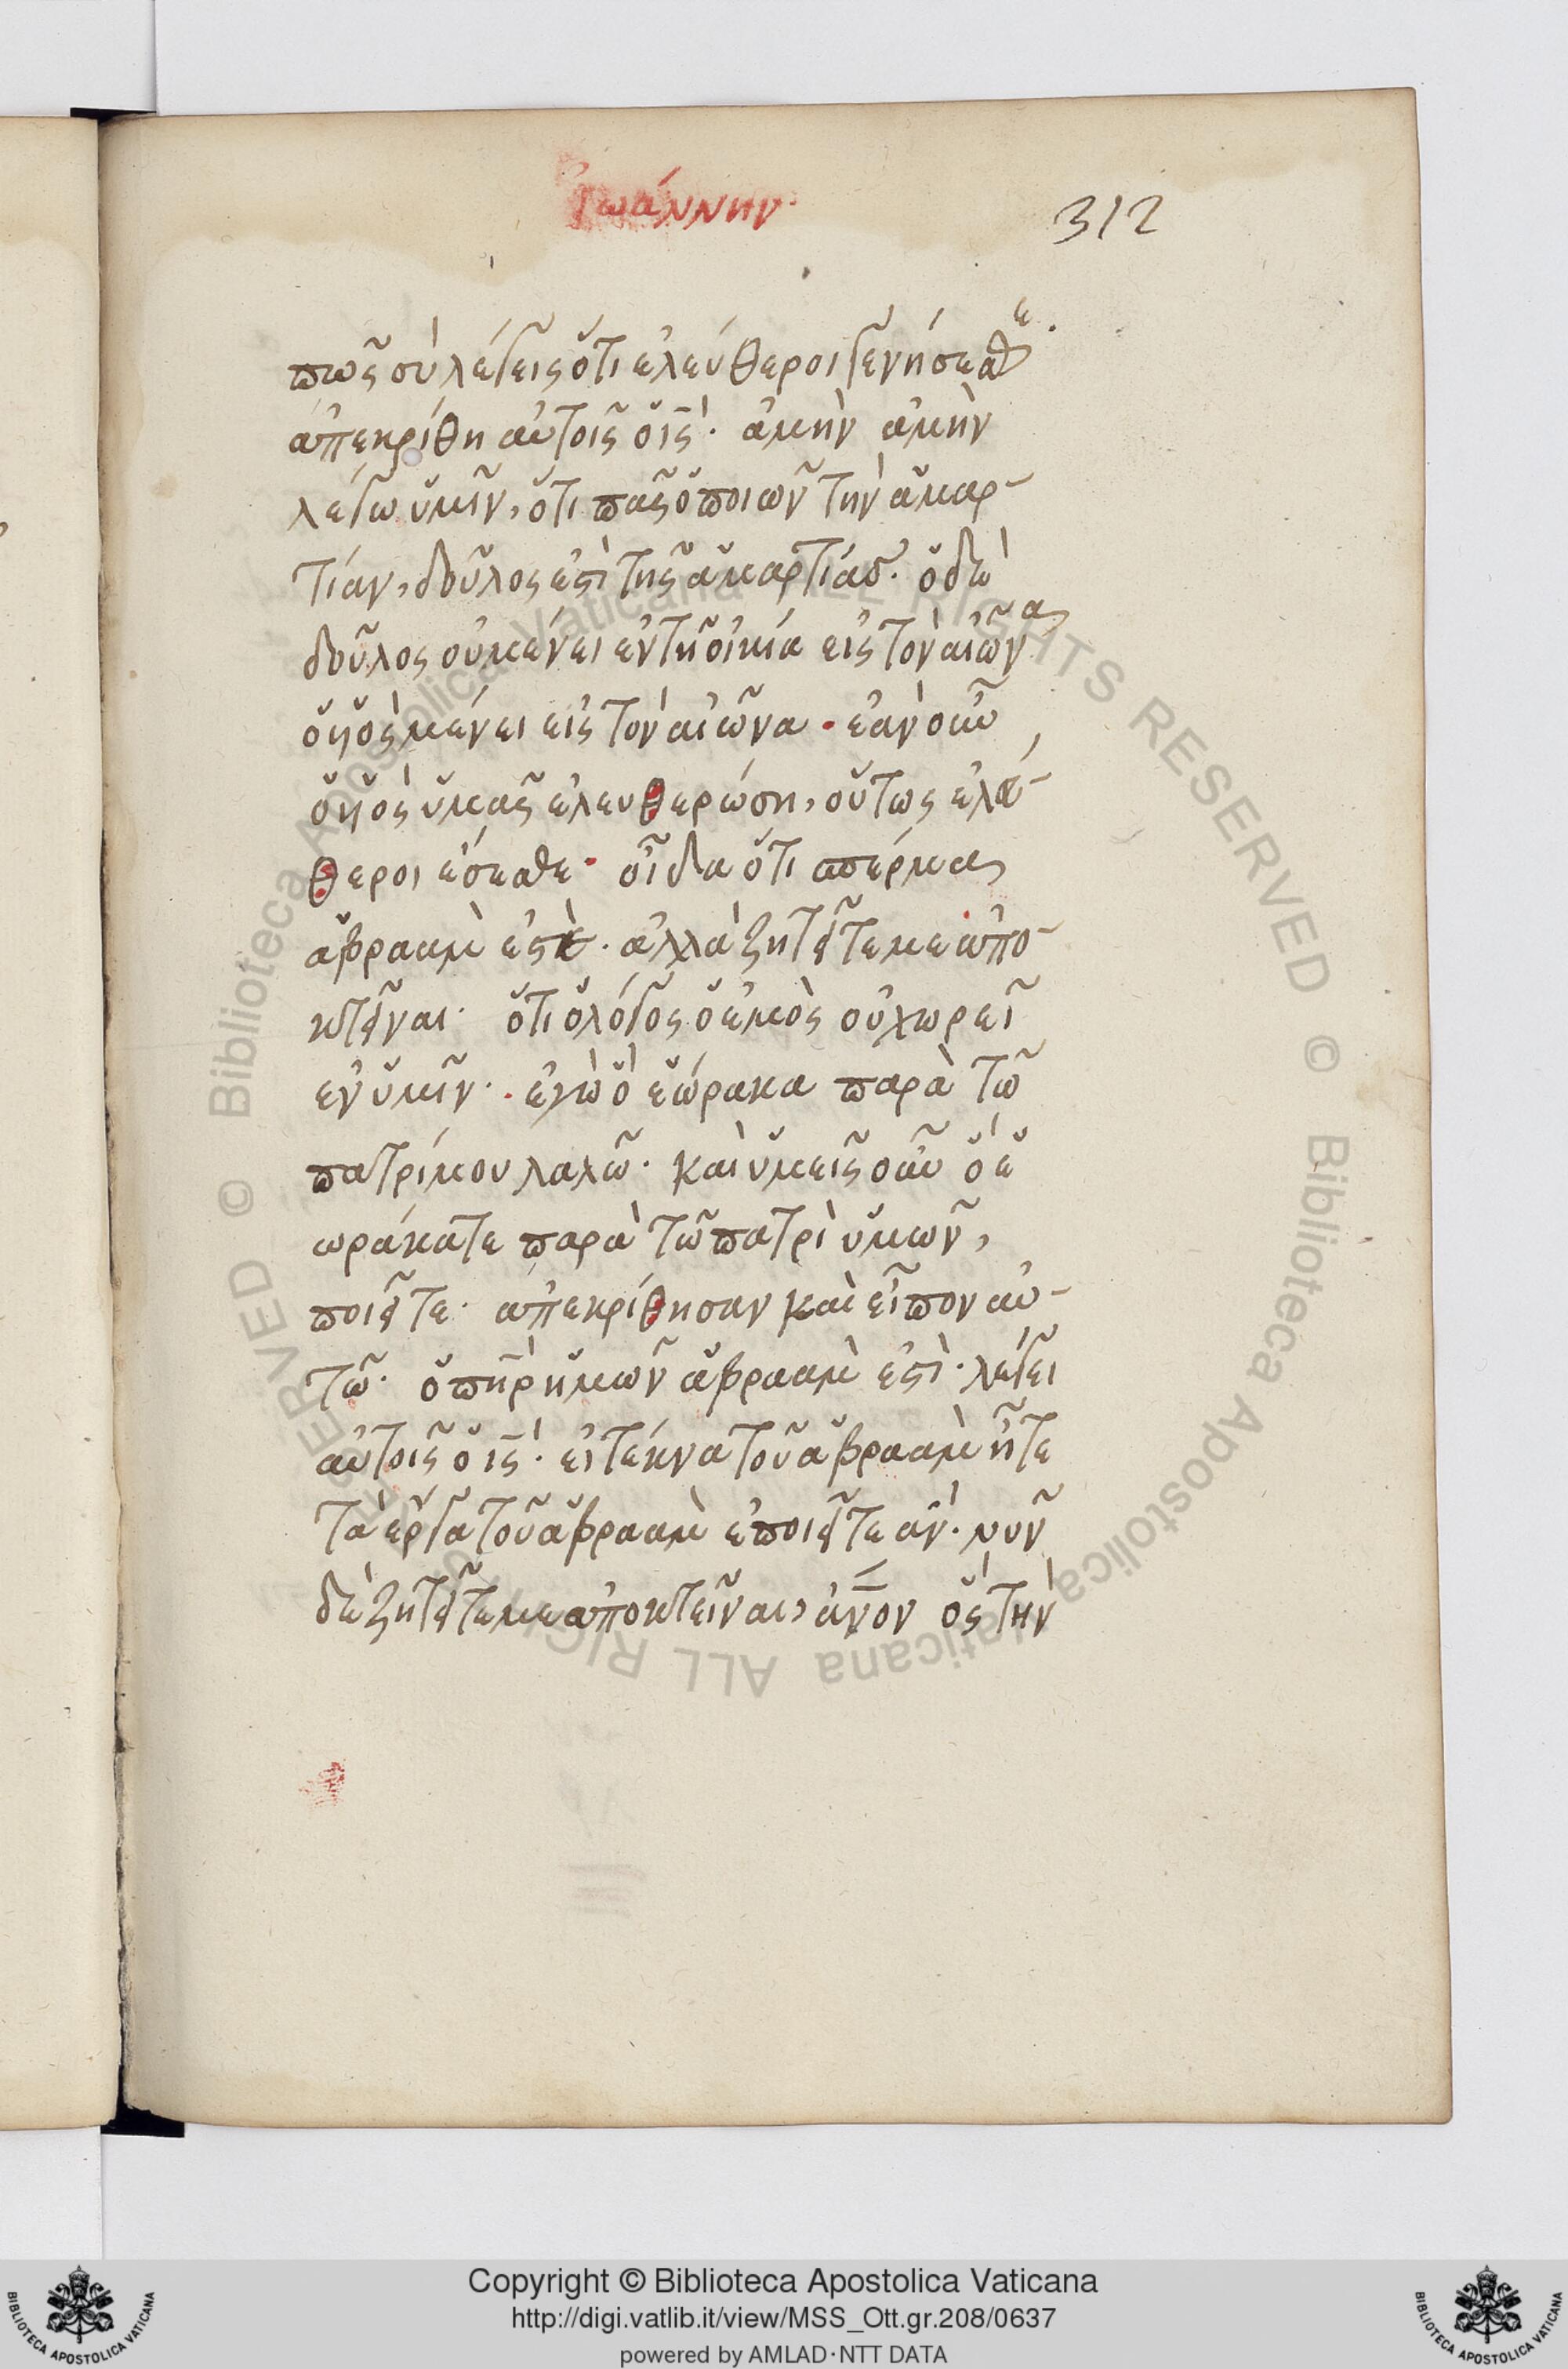 Ἰωάννην·
312
πῶς σὺ λέγεις ὅτι ἐλεύθεροι γενήσεσθε·
ἀπεκρίθη αὐτοῖς ὁ ις· ἀμὴν ἀμὴν
λέγω ὑμῖν, ὅτι πᾶς ὁ ποιῶν τὴν ἁμαρ-
τίαν, δοῦλος ἐστὶ τῆς ἁμαρτίας. ὁ δὲ
δοῦλος οὐ μένει ἐν τῆ οἰκία εἰς τὸν αἰῶνα
ὁ υἱὸς μένει εἰς τὸν αἰῶνα· ἐὰν οὖν
ὁ υἱὸς ὑμᾶς ἐλευθερώση, οὕτως ἐλεύ-
θεροι ἔσεσθε· οἶδα ὅτι σπέρμα
ἁβραὰμ ἐστὲ· ἀλλὰ ζητεῖτε με ἀπο-
κτεῖναι· ὅτι ὁ λόγος ὁ ἐμὸς οὐ χωρεῖ
ἐν ὑμῖν· ἐγὼ ὃ ἑώρακα παρὰ τῶ
πατρί μου λαλῶ· καὶ ὑμεῖς οὖν ὃ ἑ
ωράκατε παρὰ τῶ πατρὶ ὑμῶν,
ποιεῖτε· ἀπεκρίθησαν καὶ εἶπον αὐ-
τῶ· ὁ πηρ ἡμῶν ἁβραὰμ ἐστὶ· λέγει
αὐτοῖς ὁ ις· εἰ τέκνα τοῦ ἁβραὰμ ἦτε
τὰ ἔργα τοῦ ἁβραὰμ ἐποιεῖτε ἂν· νῦν
δὲ ζητεῖτε με ἀποκτεῖναι, ἀνον ὃς τὴν
© Biblioteca Apostolica Vaticana ALL RIGHTS RESERVED © Biblioteca Apostolica Vaticana ALL RIGHTS RESERVED
Copyright © Biblioteca Apostolica Vaticana
http://digi.vatlib.it/view/MSS_Ott.gr.208/0637
powered by AMLAD·NTT DATA
BIBLIOTECA APOSTOLICA VATICANA
BIBLIOTECA APOSTOLICA VATICANA